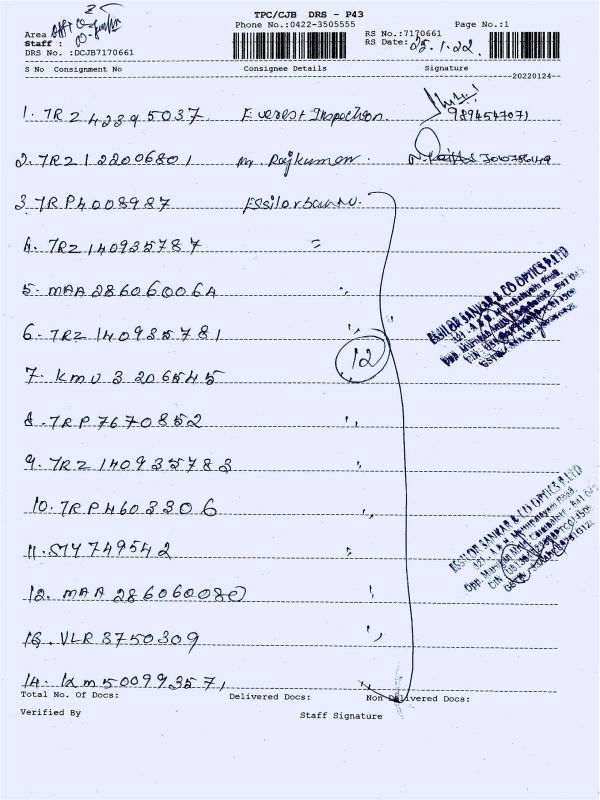 TPC/CJB DRS - P43
Phone No.:0422-3505555
Page No.:1
Area
Staff :
DRS No. :DCJB7170661
RS No.:7170661
RS Date: 25.1.22.
S No Consignment No Consignee Details Signature
20220124
1. TRZ 42395037 Everest Inspection. 9894547071
2. TRZ 122006801 Mr. Rajkumar.
3. TRP4008987 Essilor
4. TRZ 140935787 "
5. MAA 286060064 "
6. TRZ 140935781 "
12
7. KMU 3 206545 "
8. TRP 7670852 "
9. TRZ 140935783 "
10. TRP 4603306 "
11. STY 749542 "
12. MAA 286060080 "
13. VLR 3750309 "
14. IXM 500993571
ESSILOR SANKAR & CO OPTICS P LTD
ESSILOR SANKAR & CO OPTICS P LTD
Total No. Of Docs: Delivered Docs: Non Delivered Docs:
Verified By Staff Signature